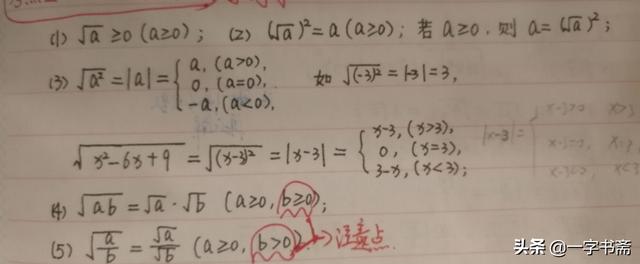 (1) √a ≥0 (a≥0); (2) (√a)²=a (a≥0); 若 a≥0, 则 a=(√a)²;
(3) √a² = |a| = { a, (a>0), 0, (a=0), -a, (a<0). 如 √(-3)² = |-3| = 3,
√x²-6x+9 = √(x-3)² = |x-3| = { x-3, (x>3), 0, (x=3), 3-x, (x<3); |x-3|= { x-3>0, x>3 x-3=0, x=3 x-3<0, x<3
(4) √ab = √a · √b (a≥0, b≥0);
(5) √a/b = √a/√b (a≥0, b>0) → 注意点
头条 @一字书斋